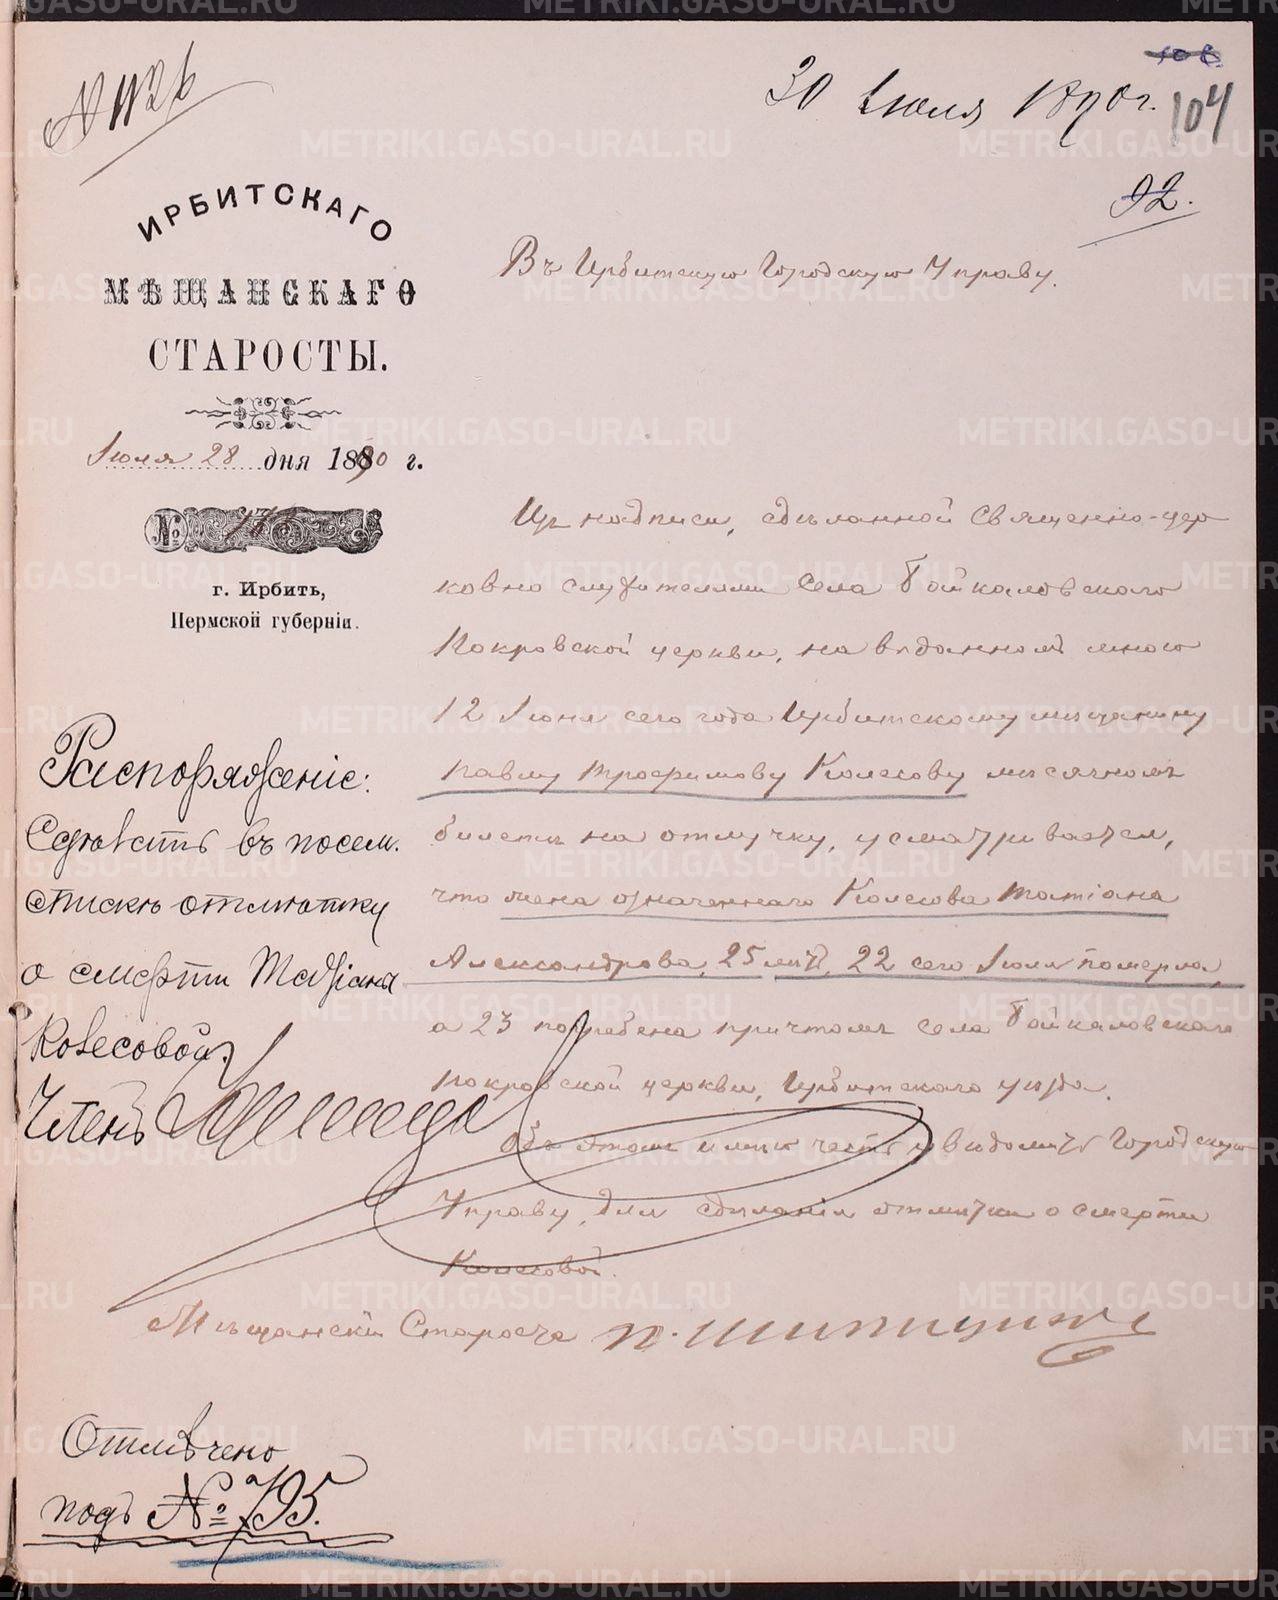 № 1126
30 Июля 1890 г.
104
92.
ИРБИТСКАГО
МѢЩАНСКАГО
СТАРОСТЫ.
Июля 28 дня 1890 г.
№
г. Ирбить,
Пермской губерніи.
Въ Ирбитскую Городскую Управу.
Изъ надписи, сдѣланной Священно-цер
ковно служителями села Байкаловскаго
Покровской церкви, на выданномъ мною
12 Июня сего года Ирбитскому мѣщанину
Павлу Трофимову Колесову мѣсячномъ
билетѣ на отлучку, усматривается,
что жена означеннаго Колесова Татіана
Александрова, 25 лѣтъ, 22 сего Июля померла,
а 23 погребена причтомъ села Байкаловскаго
Покровской церкви, Ирбитскаго уѣзда.
Объ этомъ имѣю честь увѣдомить Городскую
Управу, для сдѣланія отмѣтки о смерти
Колесовой.
Мѣщанскій Староста П. Шипицинъ
Распоряженіе:
Сдѣлать въ посем.
спискѣ отмѣтку
о смерти Татіаны
Колесовой.
Членъ
Отмѣчено
подъ № 795.
METRIKI.GASO-URAL.RU